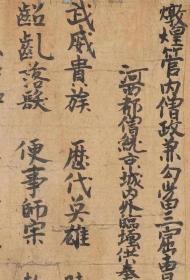 燉煌管內僧政兼勾當三窟曹
河西都僧統京城內外臨壇供奉
武威貴族 歷代英雄
齠齔落髮 便事師宗